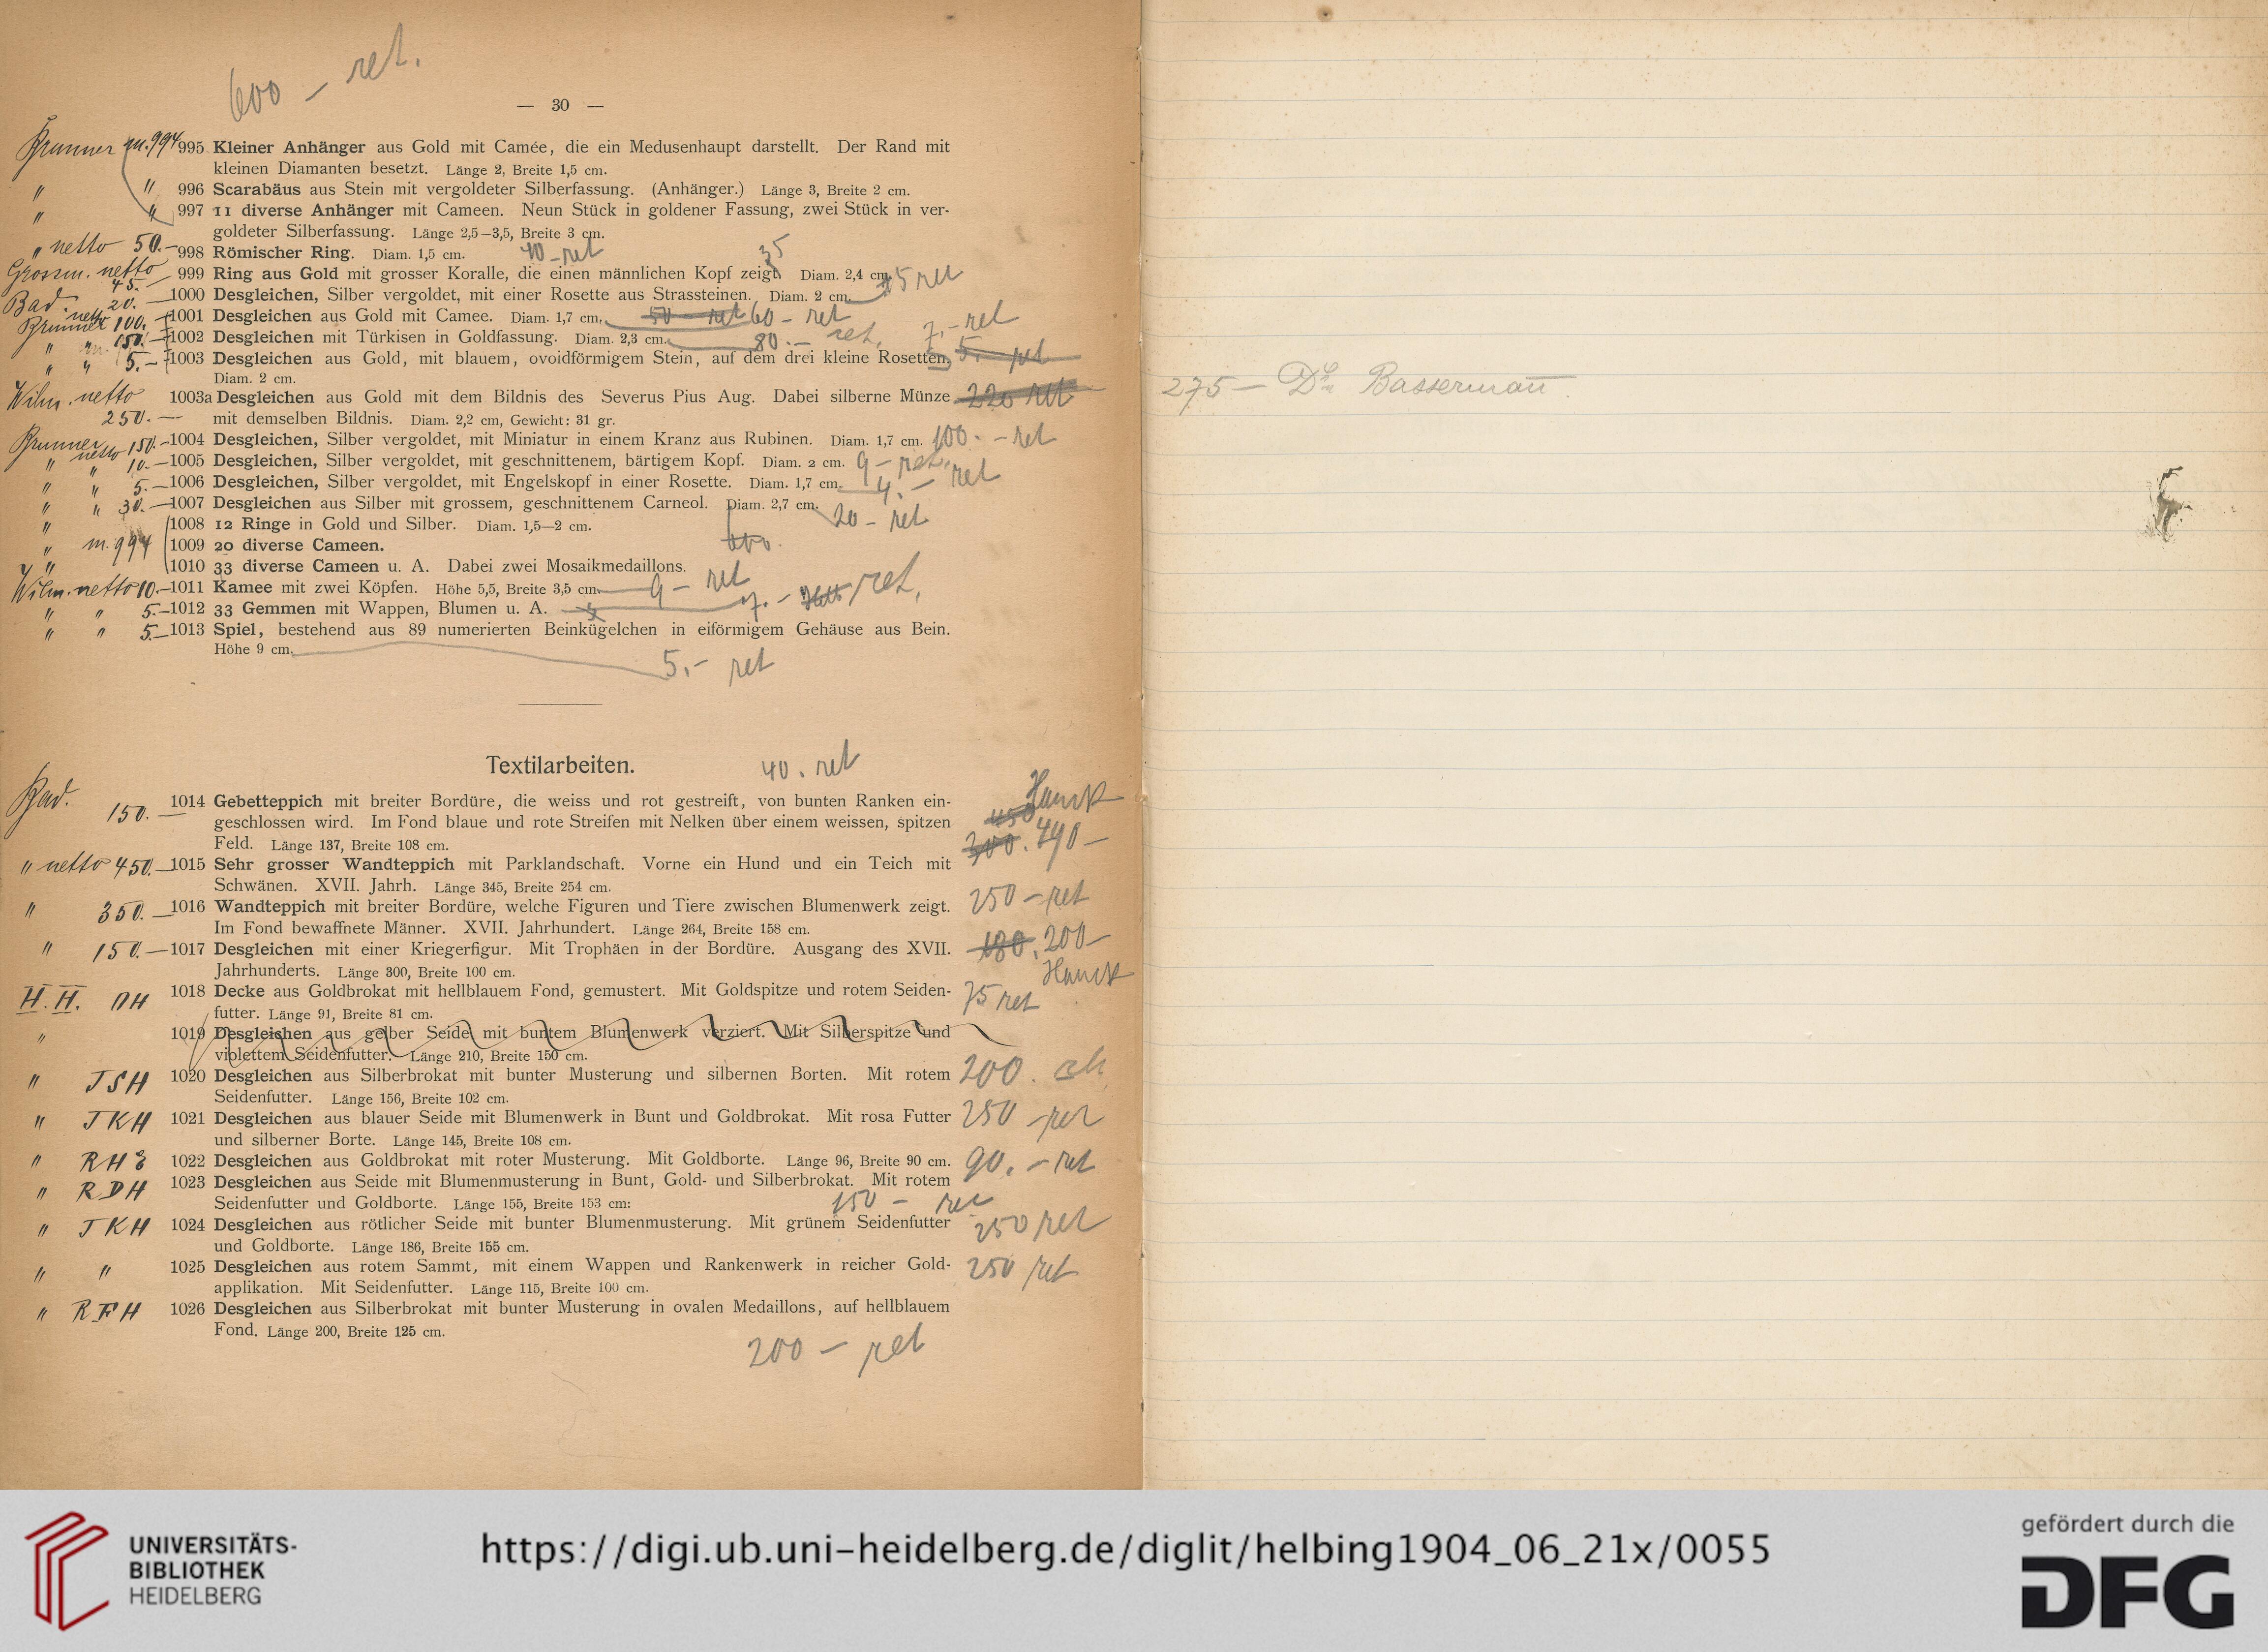 600 – ret.
— 30 —
Brunner m. 994 995 Kleiner Anhänger aus Gold mit Camée, die ein Medusenhaupt darstellt. Der Rand mit
kleinen Diamanten besetzt. Länge 2, Breite 1,5 cm.
" " 996 Scarabäus aus Stein mit vergoldeter Silberfassung. (Anhänger.) Länge 3, Breite 2 cm.
" " 997 11 diverse Anhänger mit Cameen. Neun Stück in goldener Fassung, zwei Stück in ver-
goldeter Silberfassung. Länge 2,5–3,5, Breite 3 cm.
" netto 50.– 998 Römischer Ring. Diam. 1,5 cm. 40 – ret
35
Grossm. netto 45.– 999 Ring aus Gold mit grosser Koralle, die einen männlichen Kopf zeigt. Diam. 2,4 cm.
Bad. netto 20. — 1000 Desgleichen, Silber vergoldet, mit einer Rosette aus Strassteinen. Diam. 2 cm. 15 ret
Brunner 100. – 1001 Desgleichen aus Gold mit Camee. Diam. 1,7 cm. 50 – ret 60 – ret
" 150. – 1002 Desgleichen mit Türkisen in Goldfassung. Diam. 2,3 cm. 80.– ret. 7.– ret
" " 5.– 1003 Desgleichen aus Gold, mit blauem, ovoidförmigem Stein, auf dem drei kleine Rosetten. 5. – ret
Diam. 2 cm.
Wilm. netto 1003a Desgleichen aus Gold mit dem Bildnis des Severus Pius Aug. Dabei silberne Münze 220 ret
250.— mit demselben Bildnis. Diam. 2,2 cm, Gewicht: 31 gr.
Brunner netto 150.– 1004 Desgleichen, Silber vergoldet, mit Miniatur in einem Kranz aus Rubinen. Diam. 1,7 cm. 100. – ret
" " 10.– 1005 Desgleichen, Silber vergoldet, mit geschnittenem, bärtigem Kopf. Diam. 2 cm. 9 – ret.
" " 5.– 1006 Desgleichen, Silber vergoldet, mit Engelskopf in einer Rosette. Diam. 1,7 cm. 4. – ret
" " 30.– 1007 Desgleichen aus Silber mit grossem, geschnittenem Carneol. Diam. 2,7 cm. 20 – ret
" 1008 12 Ringe in Gold und Silber. Diam. 1,5—2 cm.
" m. 994 1009 20 diverse Cameen. 600.
" 1010 33 diverse Cameen u. A. Dabei zwei Mosaikmedaillons.
Wilm. netto 10.– 1011 Kamee mit zwei Köpfen. Höhe 5,5, Breite 3,5 cm. 9 – ret
" " 5.– 1012 33 Gemmen mit Wappen, Blumen u. A. 7. – ret.
" " 5.– 1013 Spiel, bestehend aus 89 numerierten Beinkügelchen in eiförmigem Gehäuse aus Bein.
Höhe 9 cm.
5.– ret
Textilarbeiten.
40. ret
Bad. 150. — 1014 Gebetteppich mit breiter Bordüre, die weiss und rot gestreift, von bunten Ranken ein-
geschlossen wird. Im Fond blaue und rote Streifen mit Nelken über einem weissen, spitzen
Feld. Länge 137, Breite 108 cm.
450 Hauck
300. 490 –
" netto 450.– 1015 Sehr grosser Wandteppich mit Parklandschaft. Vorne ein Hund und ein Teich mit
Schwänen. XVII. Jahrh. Länge 345, Breite 254 cm.
" 350. – 1016 Wandteppich mit breiter Bordüre, welche Figuren und Tiere zwischen Blumenwerk zeigt. 250 – ret
Im Fond bewaffnete Männer. XVII. Jahrhundert. Länge 264, Breite 158 cm.
" 150.— 1017 Desgleichen mit einer Kriegerfigur. Mit Trophäen in der Bordüre. Ausgang des XVII. 180. 200–
Jahrhunderts. Länge 300, Breite 100 cm. Hauck
H. H. DH 1018 Decke aus Goldbrokat mit hellblauem Fond, gemustert. Mit Goldspitze und rotem Seiden- 75 ret
futter. Länge 91, Breite 81 cm.
" 1019 Desgleichen aus gelber Seide mit buntem Blumenwerk verziert. Mit Silberspitze und
violettem Seidenfutter. Länge 210, Breite 150 cm.
" JSH 1020 Desgleichen aus Silberbrokat mit bunter Musterung und silbernen Borten. Mit rotem 200.
Seidenfutter. Länge 156, Breite 102 cm.
" JKH 1021 Desgleichen aus blauer Seide mit Blumenwerk in Bunt und Goldbrokat. Mit rosa Futter 250 – ret
und silberner Borte. Länge 145, Breite 108 cm.
" RH 1022 Desgleichen aus Goldbrokat mit roter Musterung. Mit Goldborte. Länge 96, Breite 90 cm. 90. – ret
" RDH 1023 Desgleichen aus Seide mit Blumenmusterung in Bunt, Gold- und Silberbrokat. Mit rotem
Seidenfutter und Goldborte. Länge 155, Breite 153 cm: 150 – ret
" JKH 1024 Desgleichen aus rötlicher Seide mit bunter Blumenmusterung. Mit grünem Seidenfutter 250 ret
und Goldborte. Länge 186, Breite 155 cm.
" " 1025 Desgleichen aus rotem Sammt, mit einem Wappen und Rankenwerk in reicher Gold- 250 ret
applikation. Mit Seidenfutter. Länge 115, Breite 100 cm.
" RFH 1026 Desgleichen aus Silberbrokat mit bunter Musterung in ovalen Medaillons, auf hellblauem
Fond. Länge 200, Breite 125 cm.
200 – ret
275 — Dr. Bassermann.
UNIVERSITÄTS-
BIBLIOTHEK
HEIDELBERG
https://digi.ub.uni-heidelberg.de/diglit/helbing1904_06_21x/0055
gefördert durch die
DFG